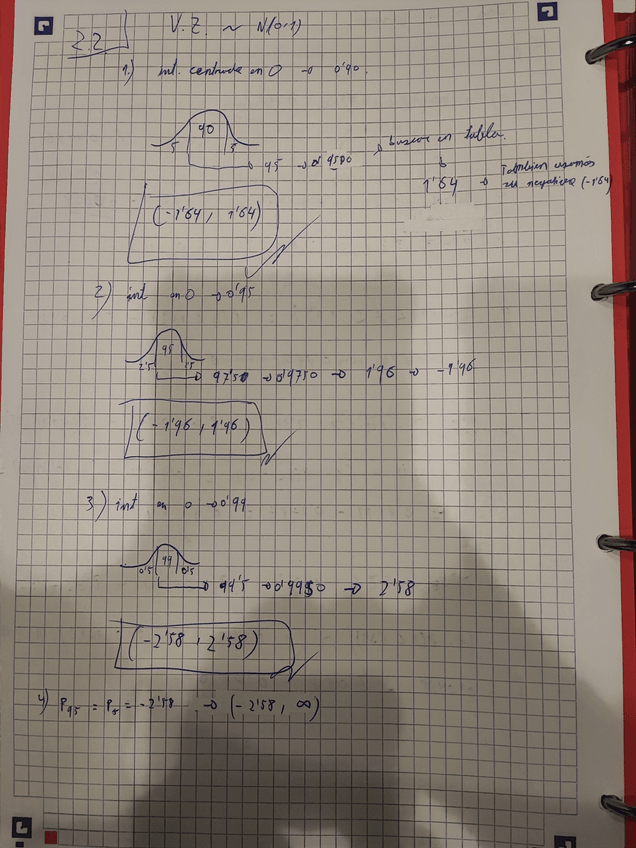 2.2 V.Z. ~ N(0,1)
1.) int. centrado en 0 → 0'90.
90
5 5
→ 95 → 0'9500 → buscar en tabla.
1'64 → También usamos
su negativo (-1'64)
(-1'64, 1'64)
2) int en 0 → 0'95
95
2'5
→ 97'50 → 0'9750 → 1'96 → -1'96
(-1'96, 1'96)
3) int en 0 → 0'99
99
0'5 0'5
→ 99'5 → 0'9950 → 2'58
(-2'58, 2'58)
4) P95 = = -2'58 → (-2'58, ∞)